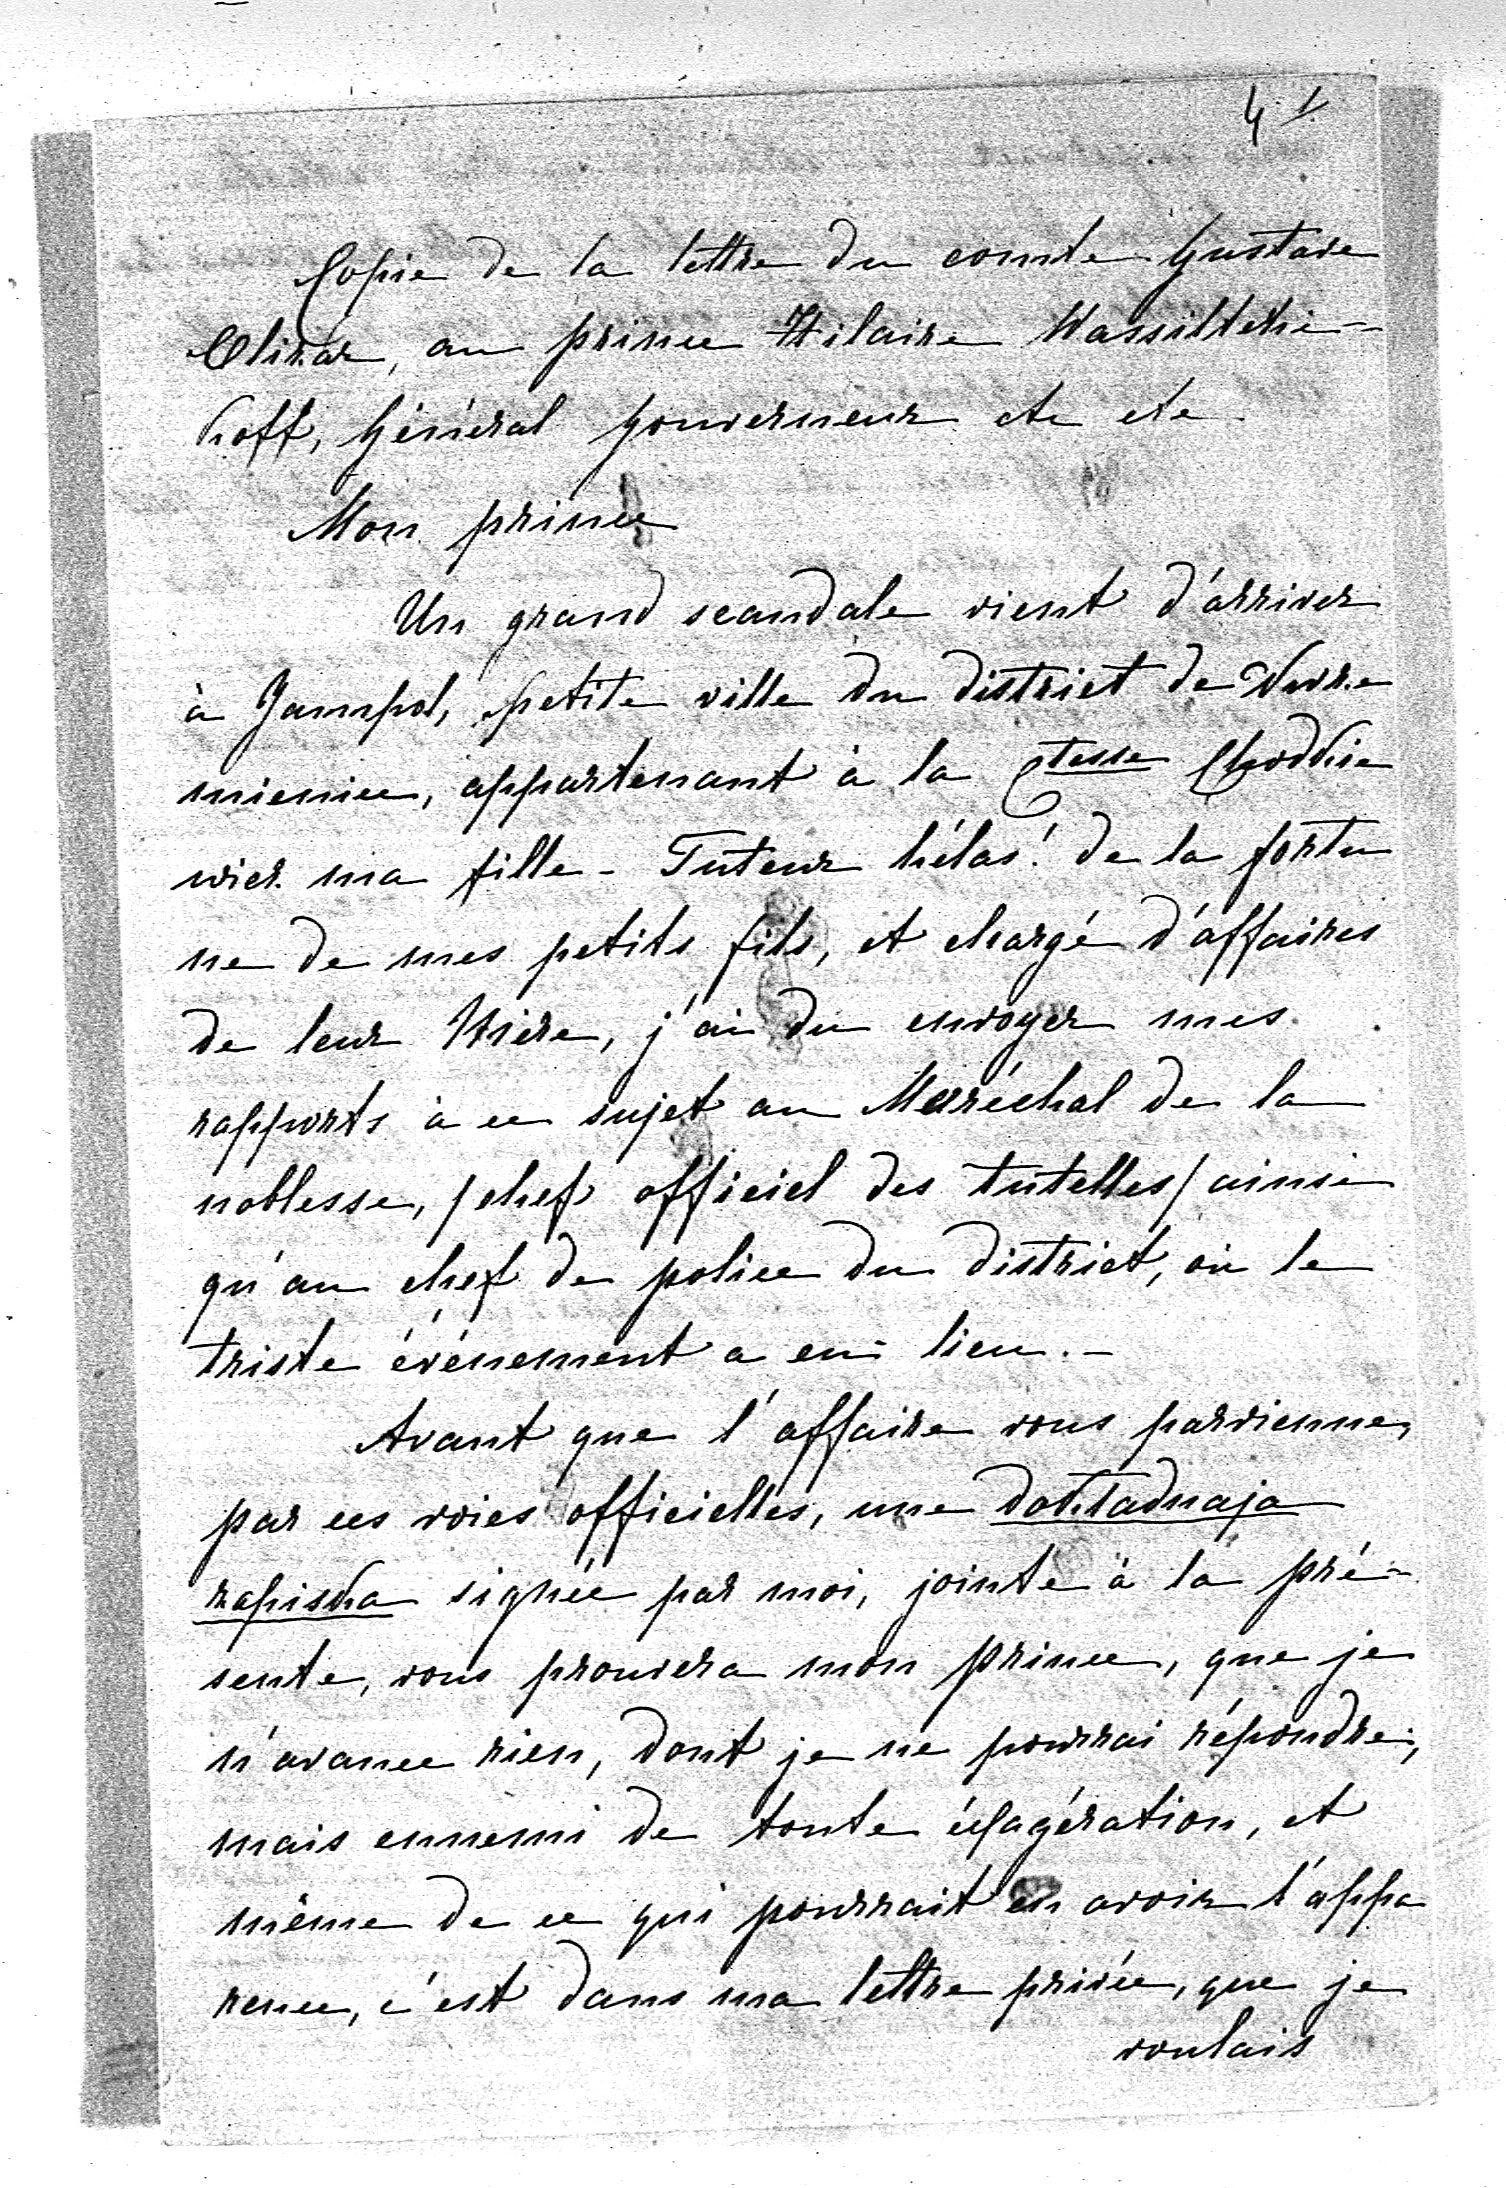 4 1
Copie de la lettre du comte Gustave
Olizar, au prince Hilaire Wassiltchi-
koff, Général gouverneur etc etc
Mon prince
Un grand scandale vient d'arriver
à Jampol, petite ville du district de Krze
mieniec, appartenant à la Ctesse Chodkie
wicz ma fille - Tuteur hélas! de la fortu
ne de mes petits fils, et chargé d'affaires
de leur Mère, j'ai du envoyer mes
rapports à ce sujet au Maréchal de la
noblesse, /chef officiel des tutelles/ ainsi
qu'au chef de police du district, où le
triste événement a eu lieu. -
Avant que l'affaire vous parvienne,
par ces voies officielles, une dokładnaja
zapiska signée par moi, jointe à la pré-
sente, vous prouvera mon prince, que je
n'avance rien, dont je ne pourrai répondre;
mais ennemi de toute éxagération, et
même de ce qui pourrait en avoir l'appa
rence, c'est dans ma lettre privée, que je
voulais